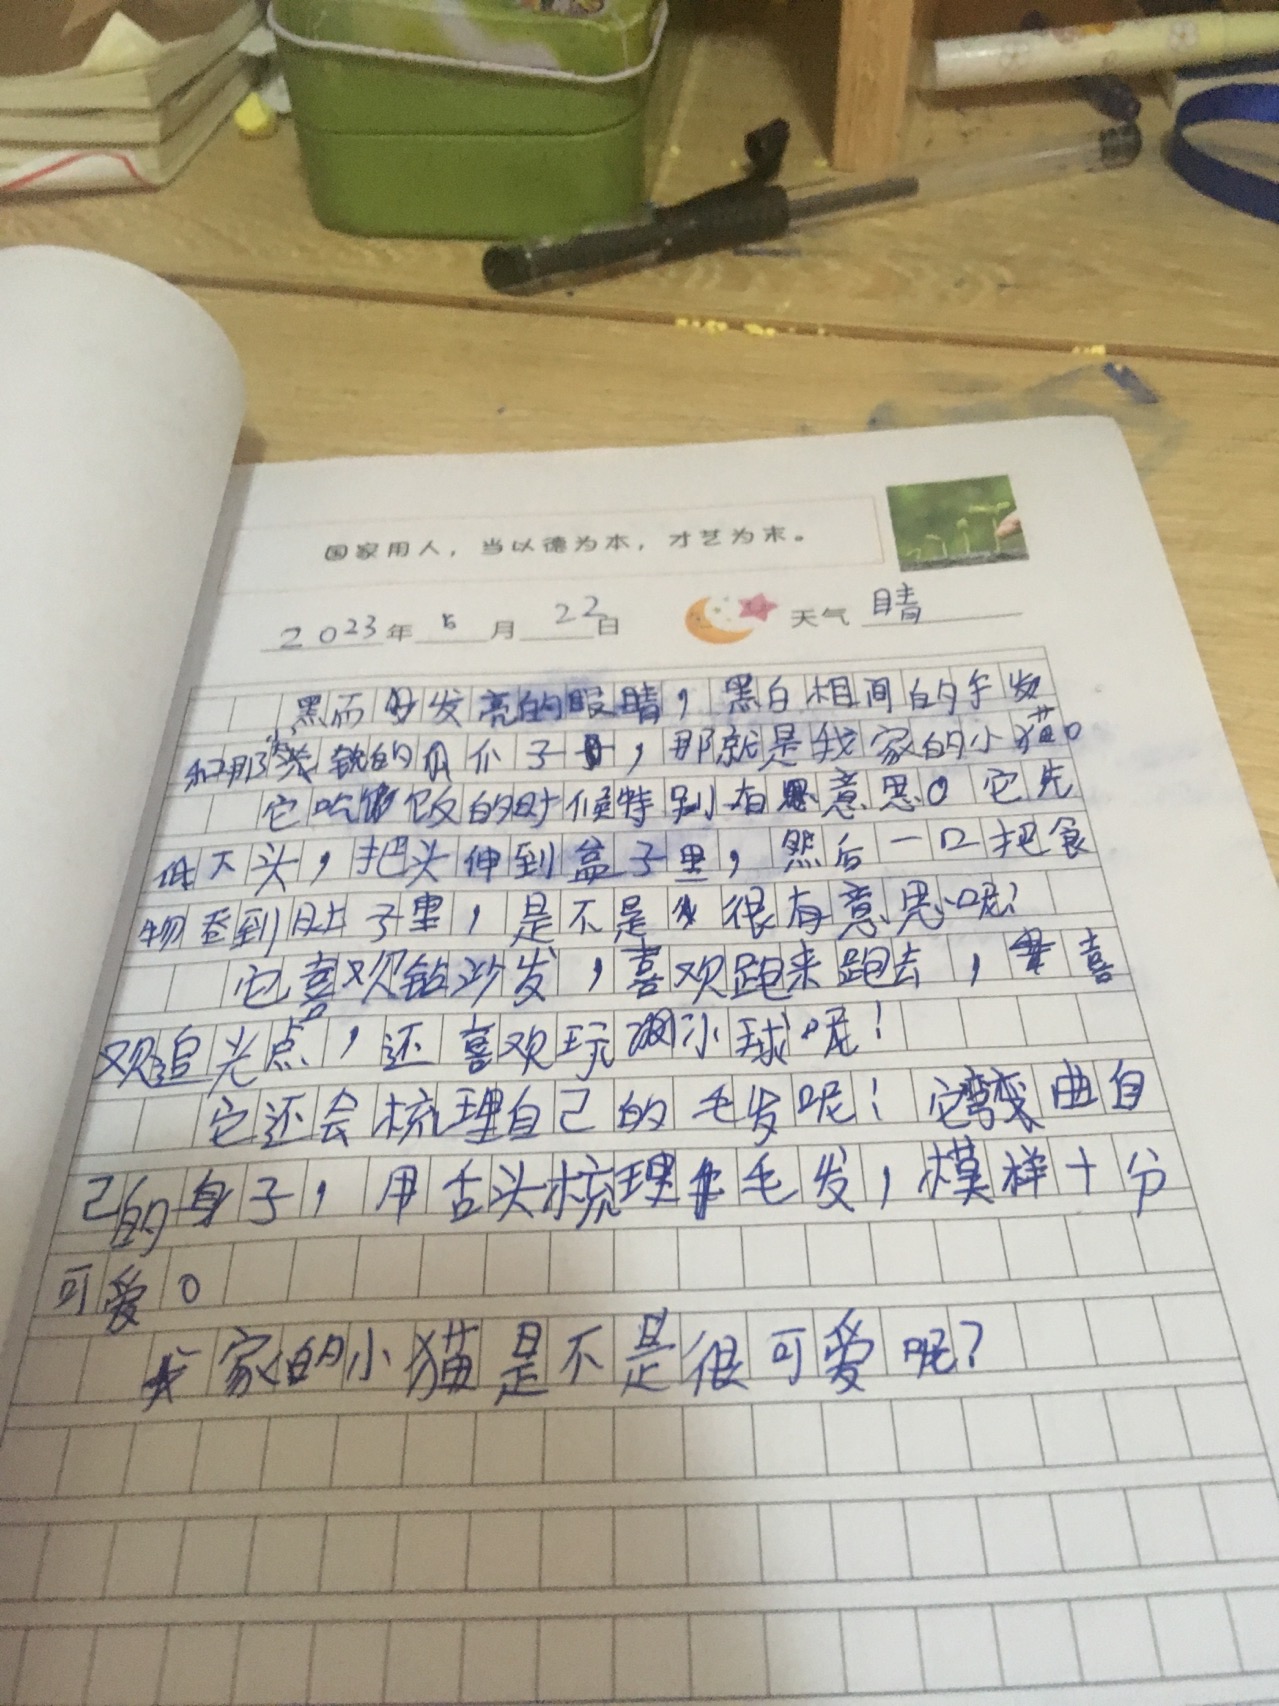 国家用人，当以德为本，才艺为末。
2023年 5月 22日 天气 晴
黑而发亮的眼睛，黑白相间的毛发
和那锐的爪子，那就是我家的小猫。
它吃饭的时候特别有意思。它先
低下头，把头伸到盆子里，然后一口把食
物吞到肚子里，是不是很有意思呢？
它喜欢钻沙发，喜欢跑来跑去，喜
欢追光点，还喜欢玩小球呢！
它还会梳理自己的毛发呢！它弯曲自
己的身子，用舌头梳理毛发，模样十分
可爱。
我家的小猫是不是很可爱呢？